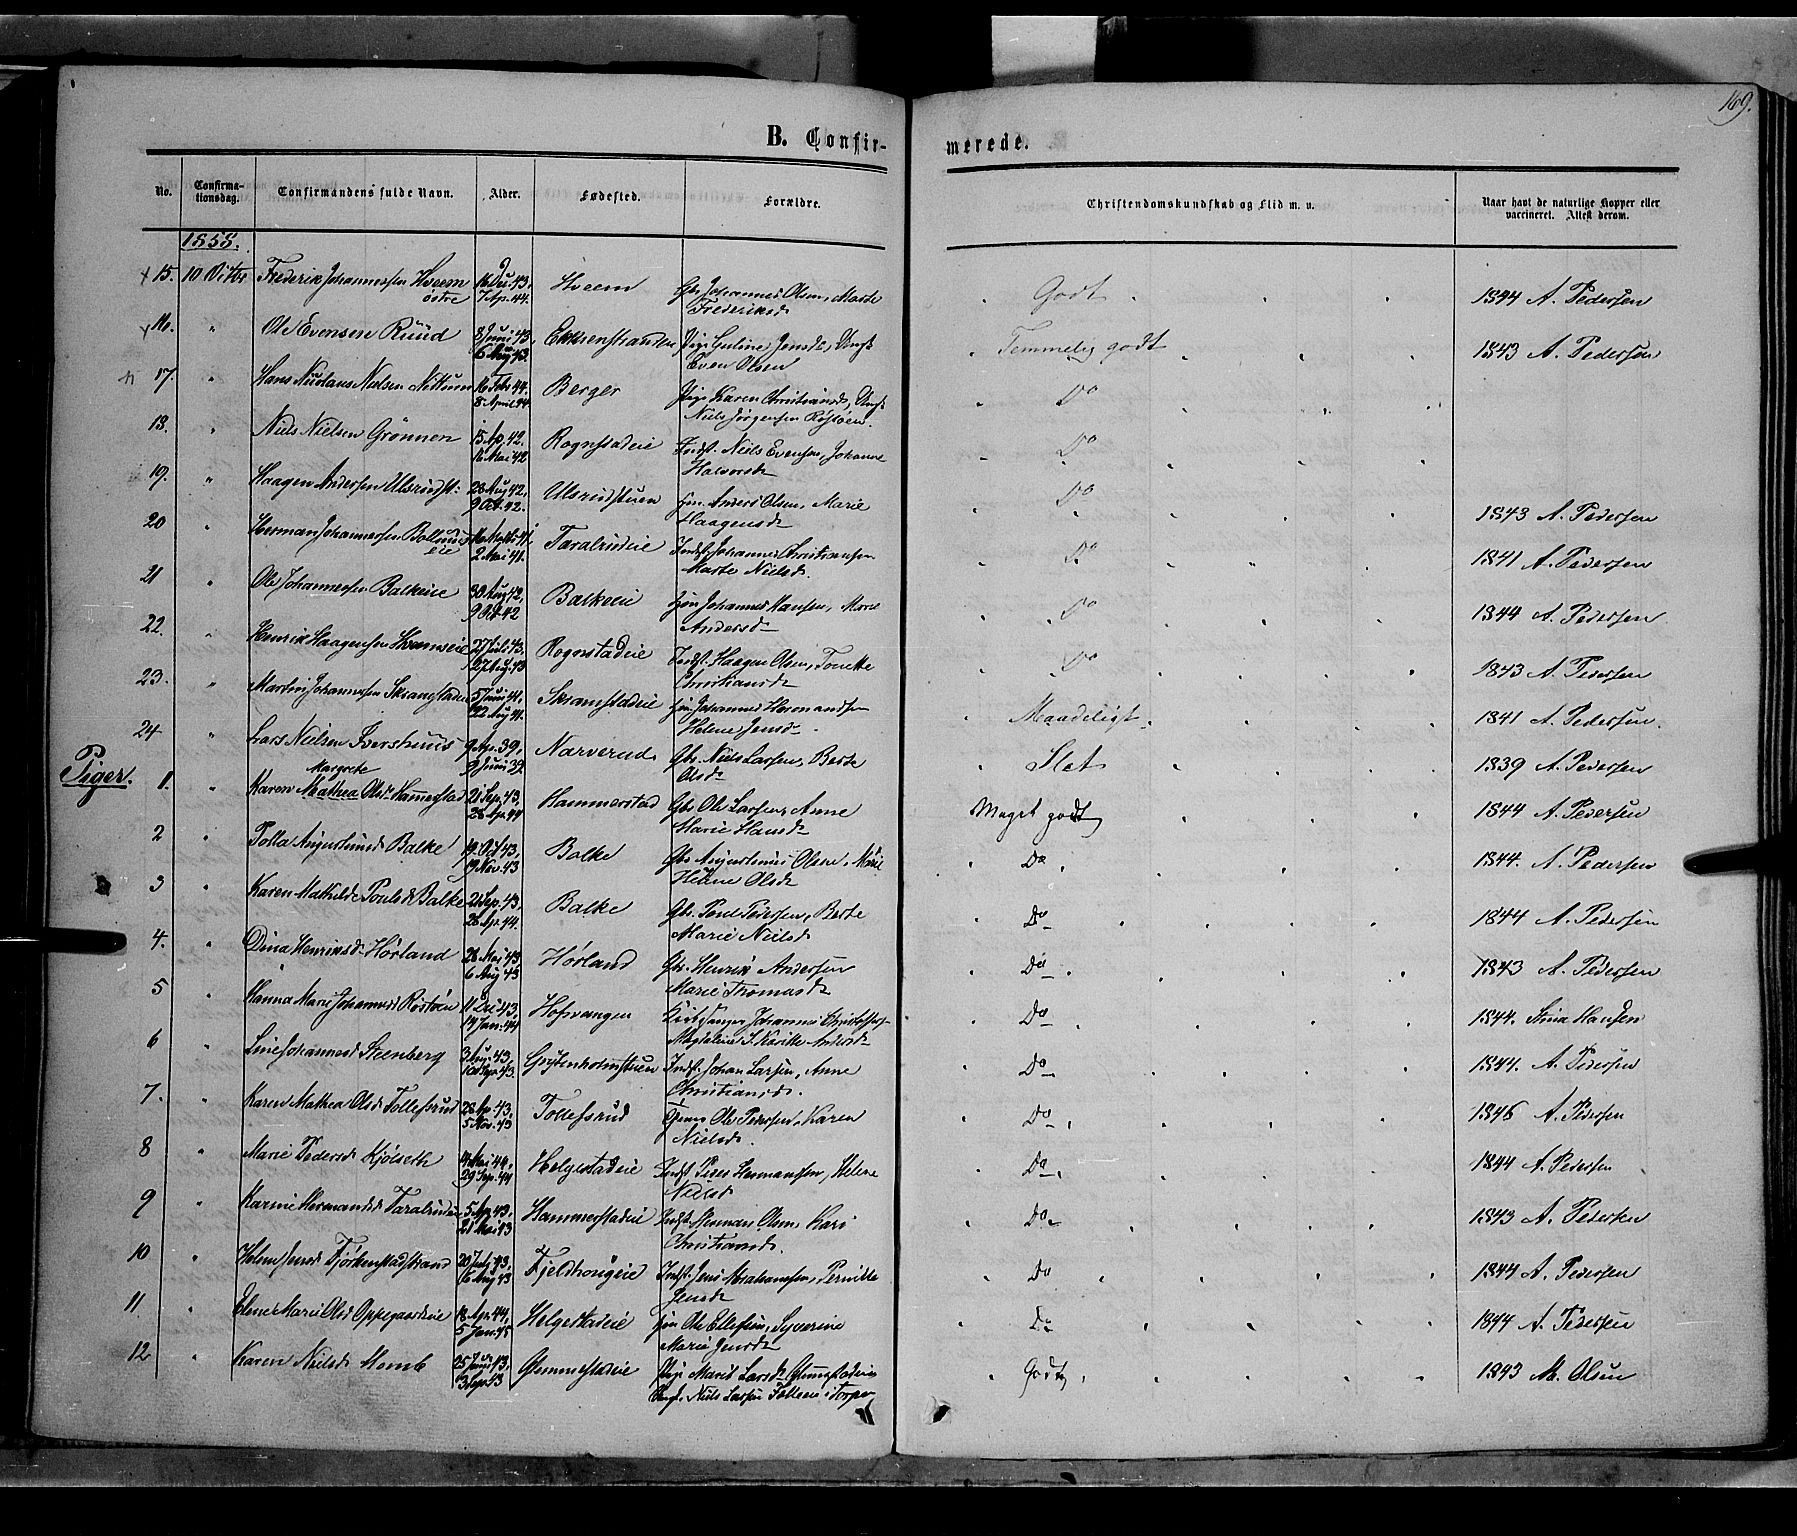 169.
B. Confirmerede.
No. Confirmationsdag. Confirmandens fulde Navn. Alder. Fødested. Forældre. Christendomskundskab og Flid m. v. Naar havt de naturlige Kopper eller vaccineret. Attest derom.
1858.
15. 10 Octbr Frederik Johannessen Hveem østre 16 Dec. 43, 7 Ap. 44. Hveem Gbr. Johannes Olsen, Marte Frederiksd. Godt 1844 A. Pedersen
16. " Ole Evensen Ruud 8 Juni 43, 6 Aug 43. Pige Guline Jensd., Ungk. Even Olsen Temmelig godt 1843 A. Pedersen
17. " Hans Nicolaus Nielsen 16 Febr 44, 8 April 44. Berger Pige Karen Christiansd., Ungk Niels Jørgensen Røstøen. Do
18. " Niels Nielsen Grönnen 15 Ap. 42. 16 Mai 42 Rognstadeie Indst. Niels Evensen, Johanne Halvorsd. Do
19. " Haagen Andersen Ulsrudst: 23 Aug 42, 9 Oct. 42. Ulsrudstuen Hm. Anders Olsen, Marie Haagensd. Do 1843 A. Pedersen
20 " Herman Johannessen 2 Mai 41. Taralrudeie Indst. Johannes Christiansen Marte Nielsd. Do 1841 A. Pedersen
21 " Ole Johannessen Balkeeie 30 Aug 42, 9 Oct 42 Balkeeie Hm Johannes Hansen, Marie Andersd. Do 1844 A. Pedersen
22. " Henrik Haagensen Hveemseie 27 Juli 43, 27 Aug. 43 Rognstadeie Indst. Haagen Olsen, Christiansd. Do 1843 A. Pedersen
23. " Martin Johannessen Skramstadeie 5 Juni 41, 22 Aug 41. Skramstadeie Hm Johannes Hermandsen Helene Jensd. Maadeligt 1841 A. Pedersen.
24 " Lars Nielsen Ivershuus 9 Ap. 39, 9 Juni 39 Narverud Gbr. Niels Larsen, Berte Olsd. Slet 1839 A. Pedersen
Piger.
1. " Karen Margrete Mathea Olsd. Hamerstad 21 Sep. 43, 28 Ap. 44 Hammerstad Gbr. Ole Larsen, Anne Marie Hansd. Meget godt 1844 A. Pedersen
2 " Augustinusd. Balke 19. Oct 43, 19 Nov. 43 Balke Gbr. Augustinus Olsen, Marie Helene Olsd. Do 1844. A. Pedersen
3 " Karen Mathilde Poulsd. Balke 21 Sep. 43, 28 Ap. 44. Balke Gbr. Poul Pedersen, Berte Marie Nielsd. Do 1844 A. Pedersen
4. " Dina Henriksd. Hörland 28 Mai 43 6 Aug 43 Hörland Gbr. Henrik Andersen Marie Thomasd. Do 1843 A. Pedersen
5 " Hanna Marie Johannesd. Rostöen 11 Dec 43, 14 Jan. 44 Hofsvangen Kirkesanger Johannes Christoffers- Magdalene Andersd. Do 1844. Stina Hansen
6 " Line Johannesd. Steenberg 3 Aug. 43, 10 Sep. 43. Grytenholmstuen Indst. Johan Larsen, Anne Christiansd. Do 1844. A. Pedersen
7. " Karen Mathea Olsd. Tollefsrud 28 Ap. 43, 5 Nov. 43 Tollefsrud Ole Pedersen, Karen Nielsd. Do 1846 A. Pedersen
8 " Marie Pedersd. Kjölseth 19 Mai 44, 29 Sep. 44 Helgestadeie Indst. Peder Hermansen, Helene Nielsd. Do 1844 A. Pedersen
9 " Karine Hermansd. Taralrudeie 5 Ap. 43, 21 Mai 43 Hammerstadeie Indst. Herman Olsen, Kari Christiansd. Do 1843 A. Pedersen
10 " Helene Jensd. Fjörkenstadstrand 20 July 43, 6 Aug 43 Fjeldhougeie Indst. Jens Abrahamsen, Pernille Jensd. Do 1844 A. Pedersen
11 " Elene Marie Olsd. Oppegaardseie 18 Ap. 44, 5 Jan. 45 Helgestadeie Hm Ole Ellefsen, Syverine Marie Jensd. Do 1844 A. Pedersen
12 " Karen Nielsd. Momb 25 Juni 43, 3 Sep. 43 Glemmestadeie Pige Marit Larsd. Ungk. Niels Larsen Godt 1843 M. Olsen